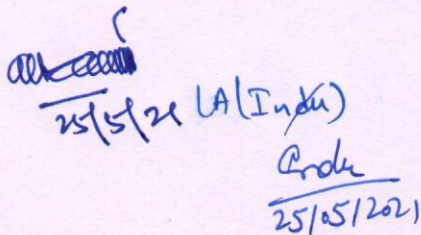 25/5/21 LA (Indu)
Indu
25/05/2021